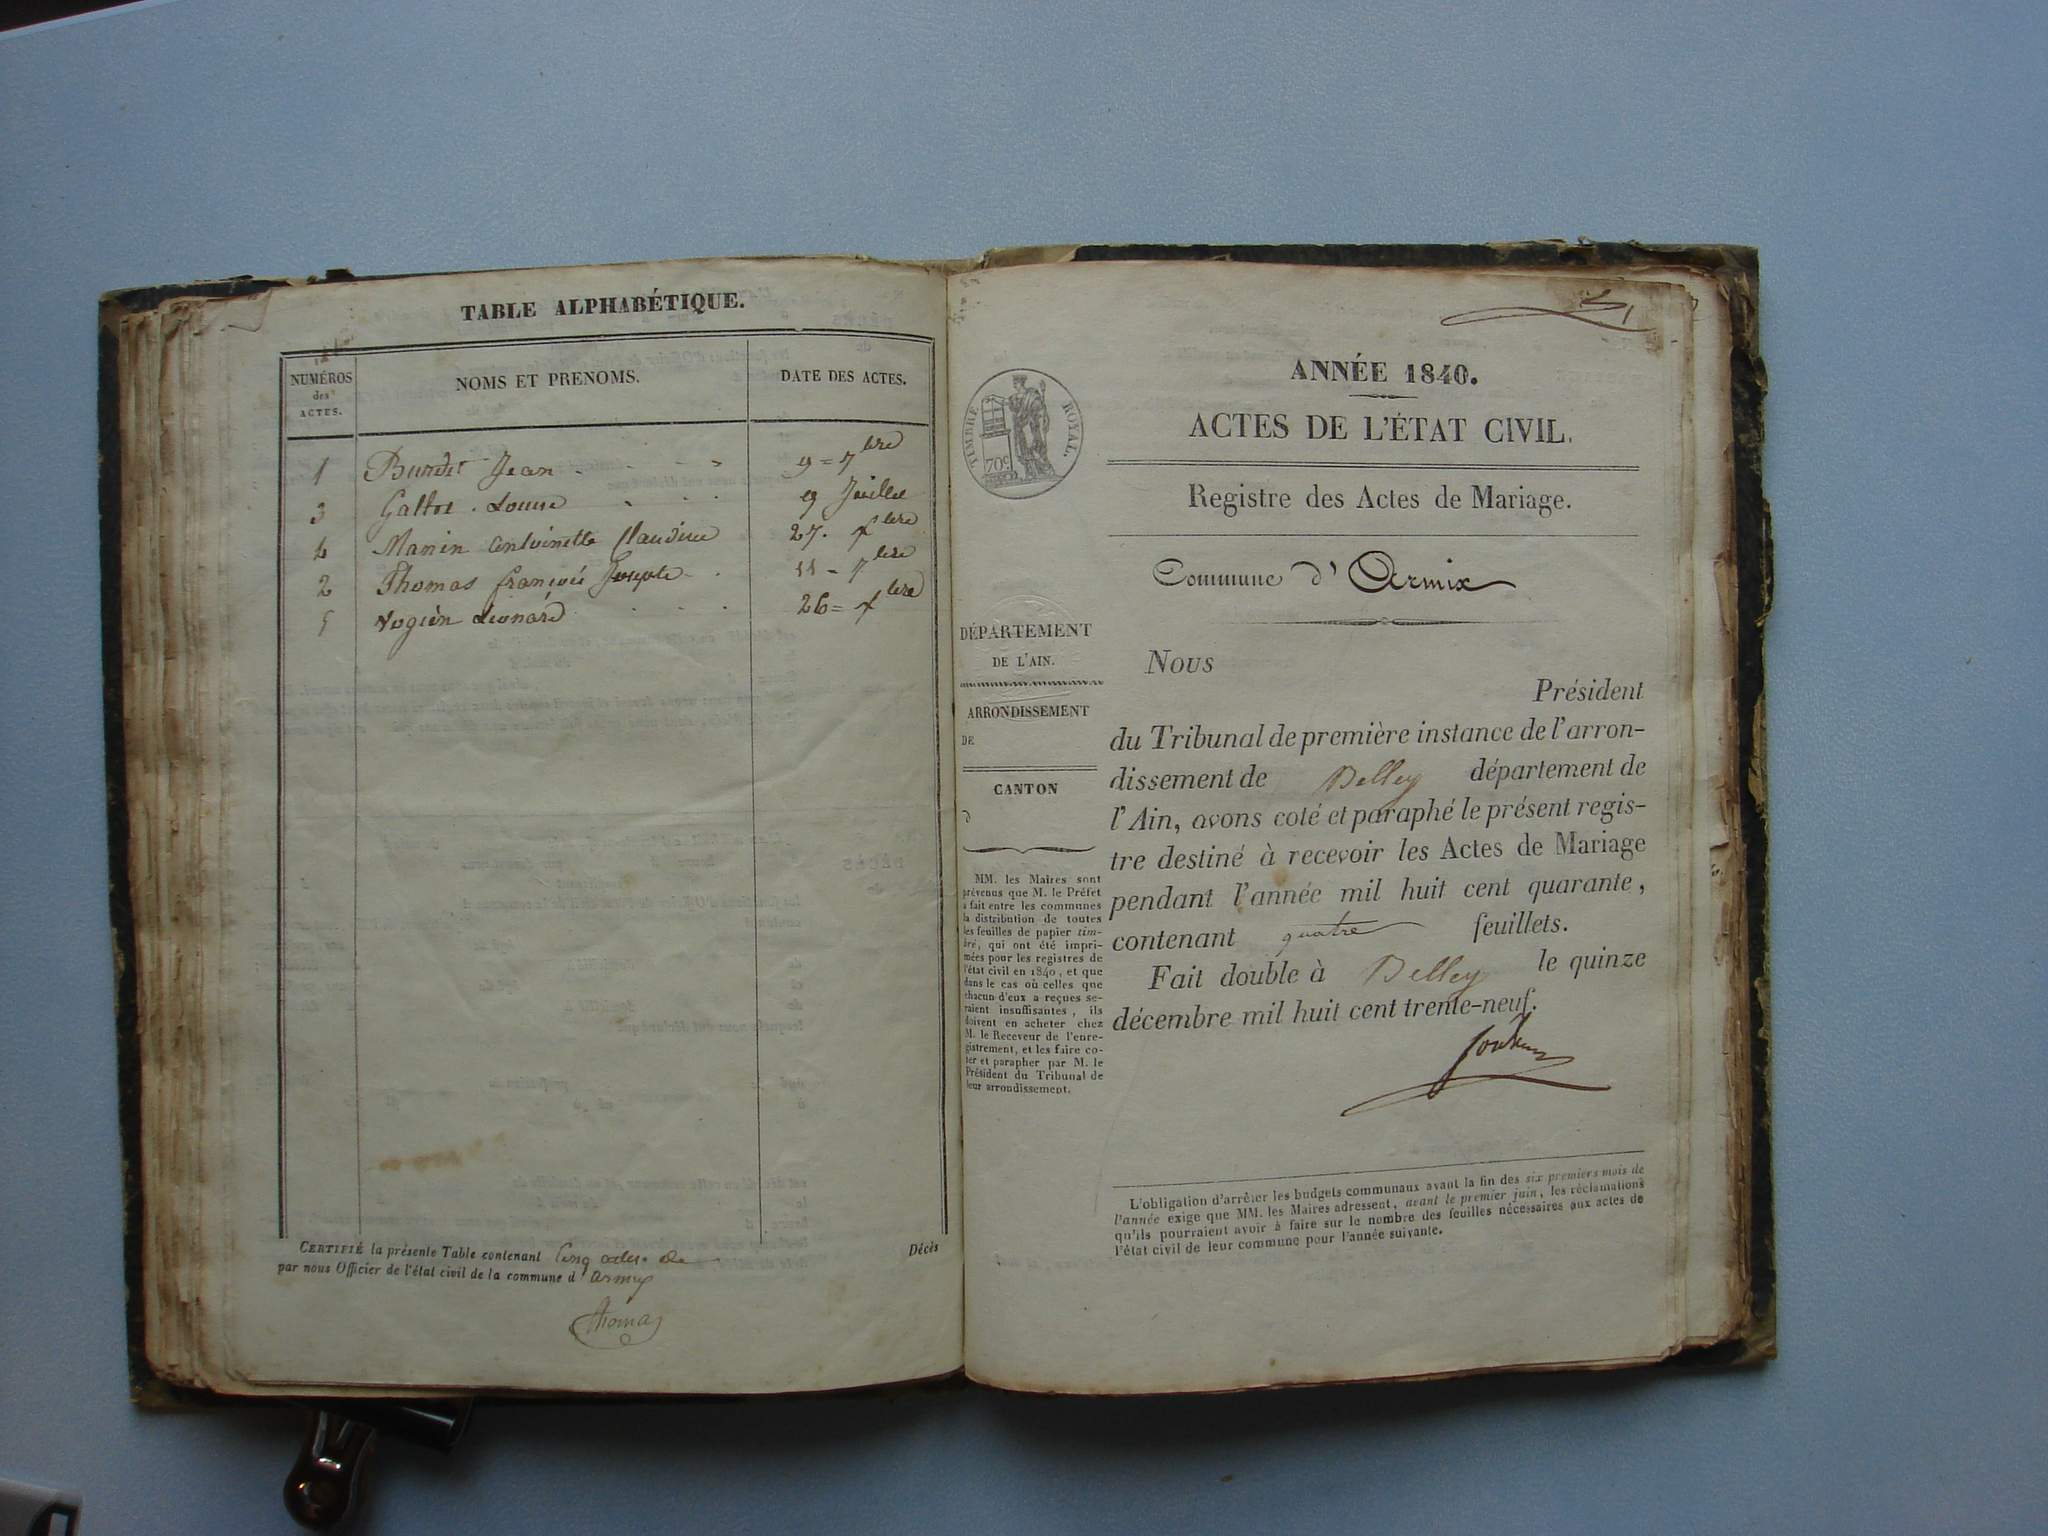 TABLE ALPHABÉTIQUE.
NUMÉROS
des
ACTES.
NOMS ET PRENOMS.
DATE DES ACTES.
1 Burdet Jean 9 = 7bre
3 Galtos Louise 9 Juillet
4 Manin Antoinette Claudine 27. Xbre
2 Thomas françois Joseph 11 = 7bre
5 Vugien Léonard 26 = Xbre
CERTIFIÉ la présente Table contenant Cinq actes de Décès
par nous Officier de l'état civil de la commune d'armix
Thomas
TIMBRE ROYAL.
70c
ANNÉE 1840.
ACTES DE L'ÉTAT CIVIL.
Registre des Actes de Mariage.
Commune d'Armix
DÉPARTEMENT
DE L'AIN.
ARRONDISSEMENT
DE
CANTON
d
MM. les Maires sont
prévenus que M. le Préfet
a fait entre les communes
la distribution de toutes
les feuilles de papier tim-
bré, qui ont été impri-
mées pour les registres de
l'état civil en 1840, et que
dans le cas où celles que
chacun d'eux a reçues se-
raient insuffisantes, ils
doivent en acheter chez
M. le Receveur de l'enre-
gistrement, et les faire co-
ter et parapher par M. le
Président du Tribunal de
leur arrondissement.
Nous
Président
du Tribunal de première instance de l'arron-
dissement de Belley département de
l'Ain, avons coté et paraphé le présent regis-
tre destiné à recevoir les Actes de Mariage
pendant l'année mil huit cent quarante,
contenant quatre feuillets.
Fait double à Belley le quinze
décembre mil huit cent trente-neuf.
L'obligation d'arrêter les budgets communaux avant la fin des six premiers mois de
l'année exige que MM. les Maires adressent, avant le premier juin, les réclamations
qu'ils pourraient avoir à faire sur le nombre des feuilles nécessaires aux actes de
l'état civil de leur commune pour l'année suivante.